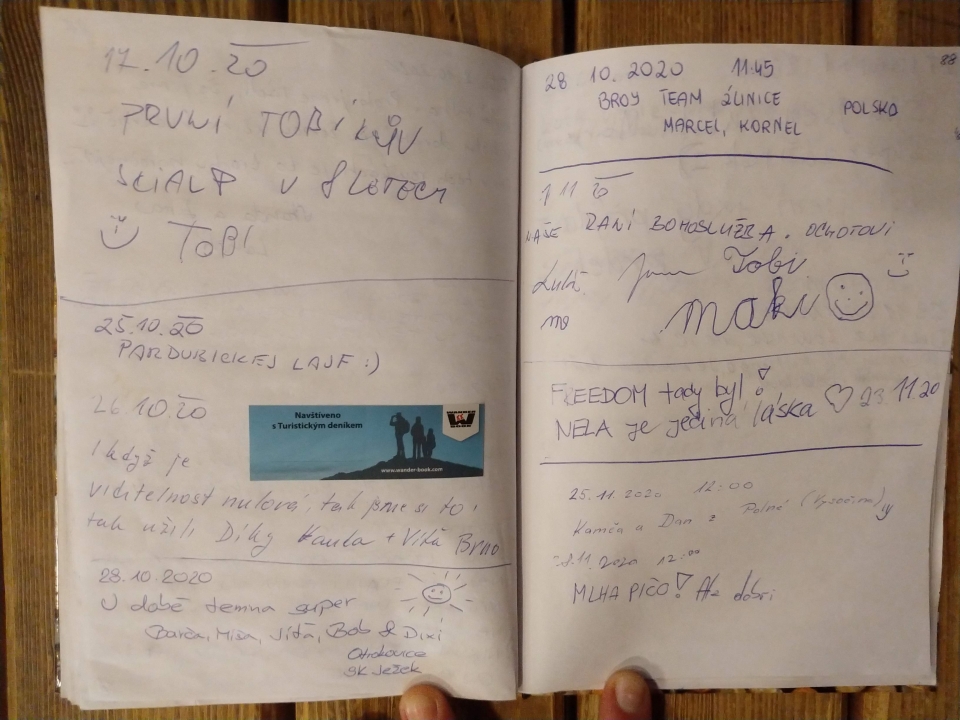 17.10.20
PRVNÍ TOBÍKŮV
SCIALP V 8 LETECH
TOBI
25.10.20
PARDUBICKEJ LAJF :)
26.10.20
Navštíveno
s Turistickým deníkem
WANDER
BOOK
www.wander-book.com
I když je
viditelnost nulová, tak jsme si to
tak užili Díky Kaula + Víťa Brno
28.10.2020
V době temna super
Barča, Míša, Jíťa, Bob & Dixi
Otrokovice
SK Ježek
88
28 10. 2020 11:45
BROY TEAM ŻLINICE POLSKO
MARCEL, KORNEL
1 11 20
NAŠE RANÍ BOHOSLUŽBA.
Tobi
maki
FREEDOM tady byl! 23 11.20
NELA je jediná láska
25.11.2020 12:00
Kamča a Dan z Polné (Vysočiny)
.11.2020 12:00
MLHA PIČO! Ale dobrý